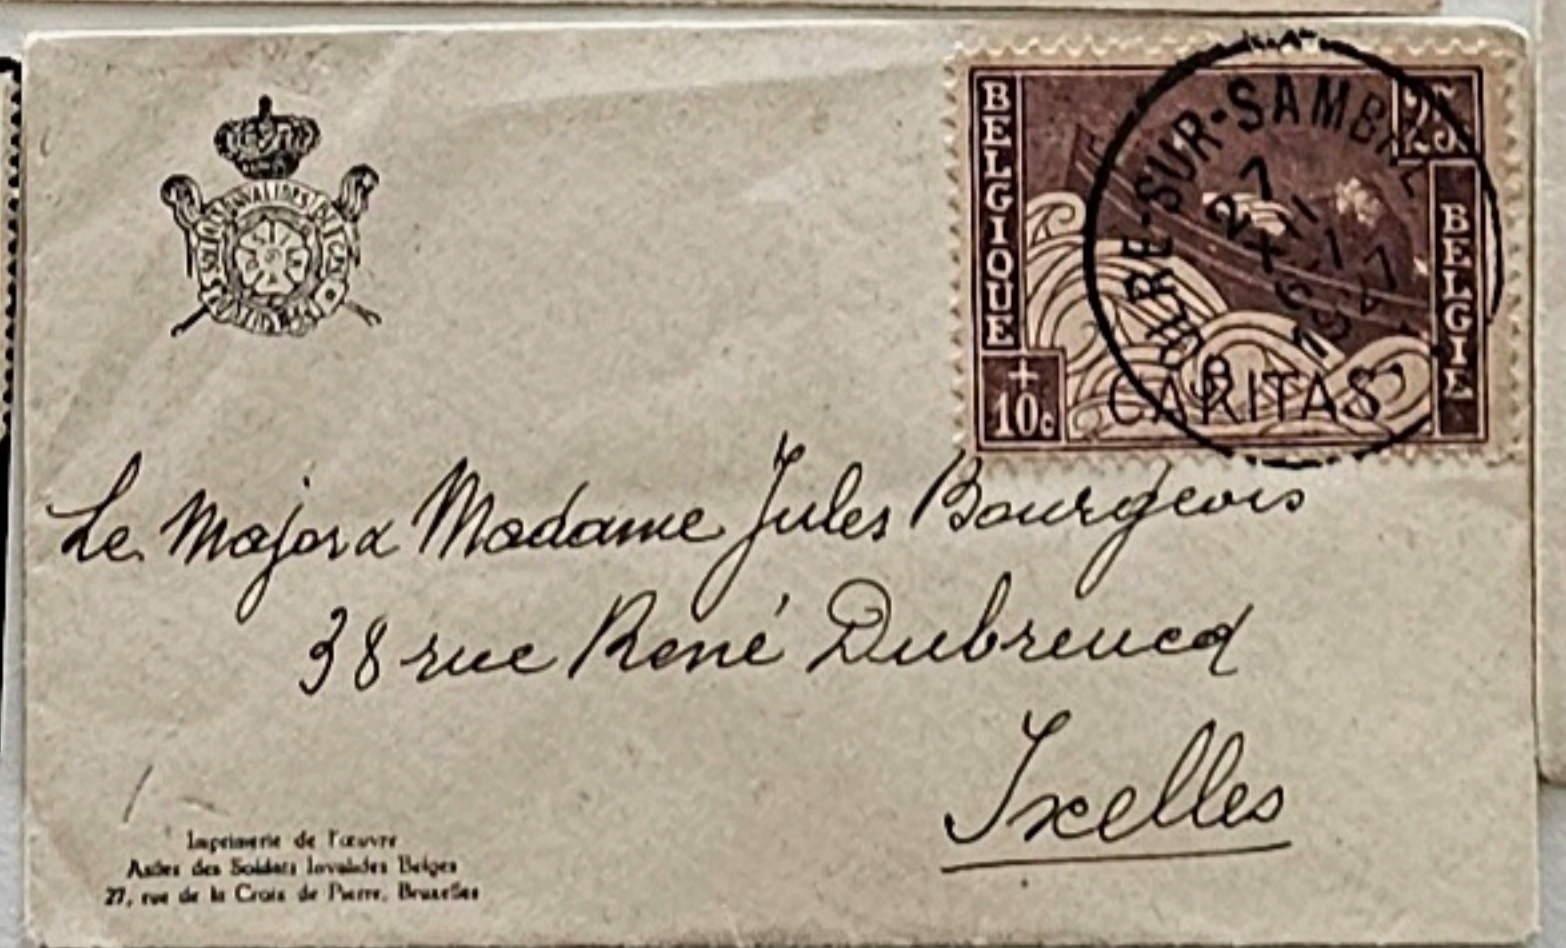 BELGIQUE
25c
BELGIE
+
10c
CARITAS
-SUR-SAMBRE
27
XI
1927
Le Major & Madame Jules Bourgeois
38 rue René Dubreucq
Ixelles
Imprimerie de l'œuvre
Asiles des Soldats Invalides Belges
27, rue de la Croix de Pierre, Bruxelles